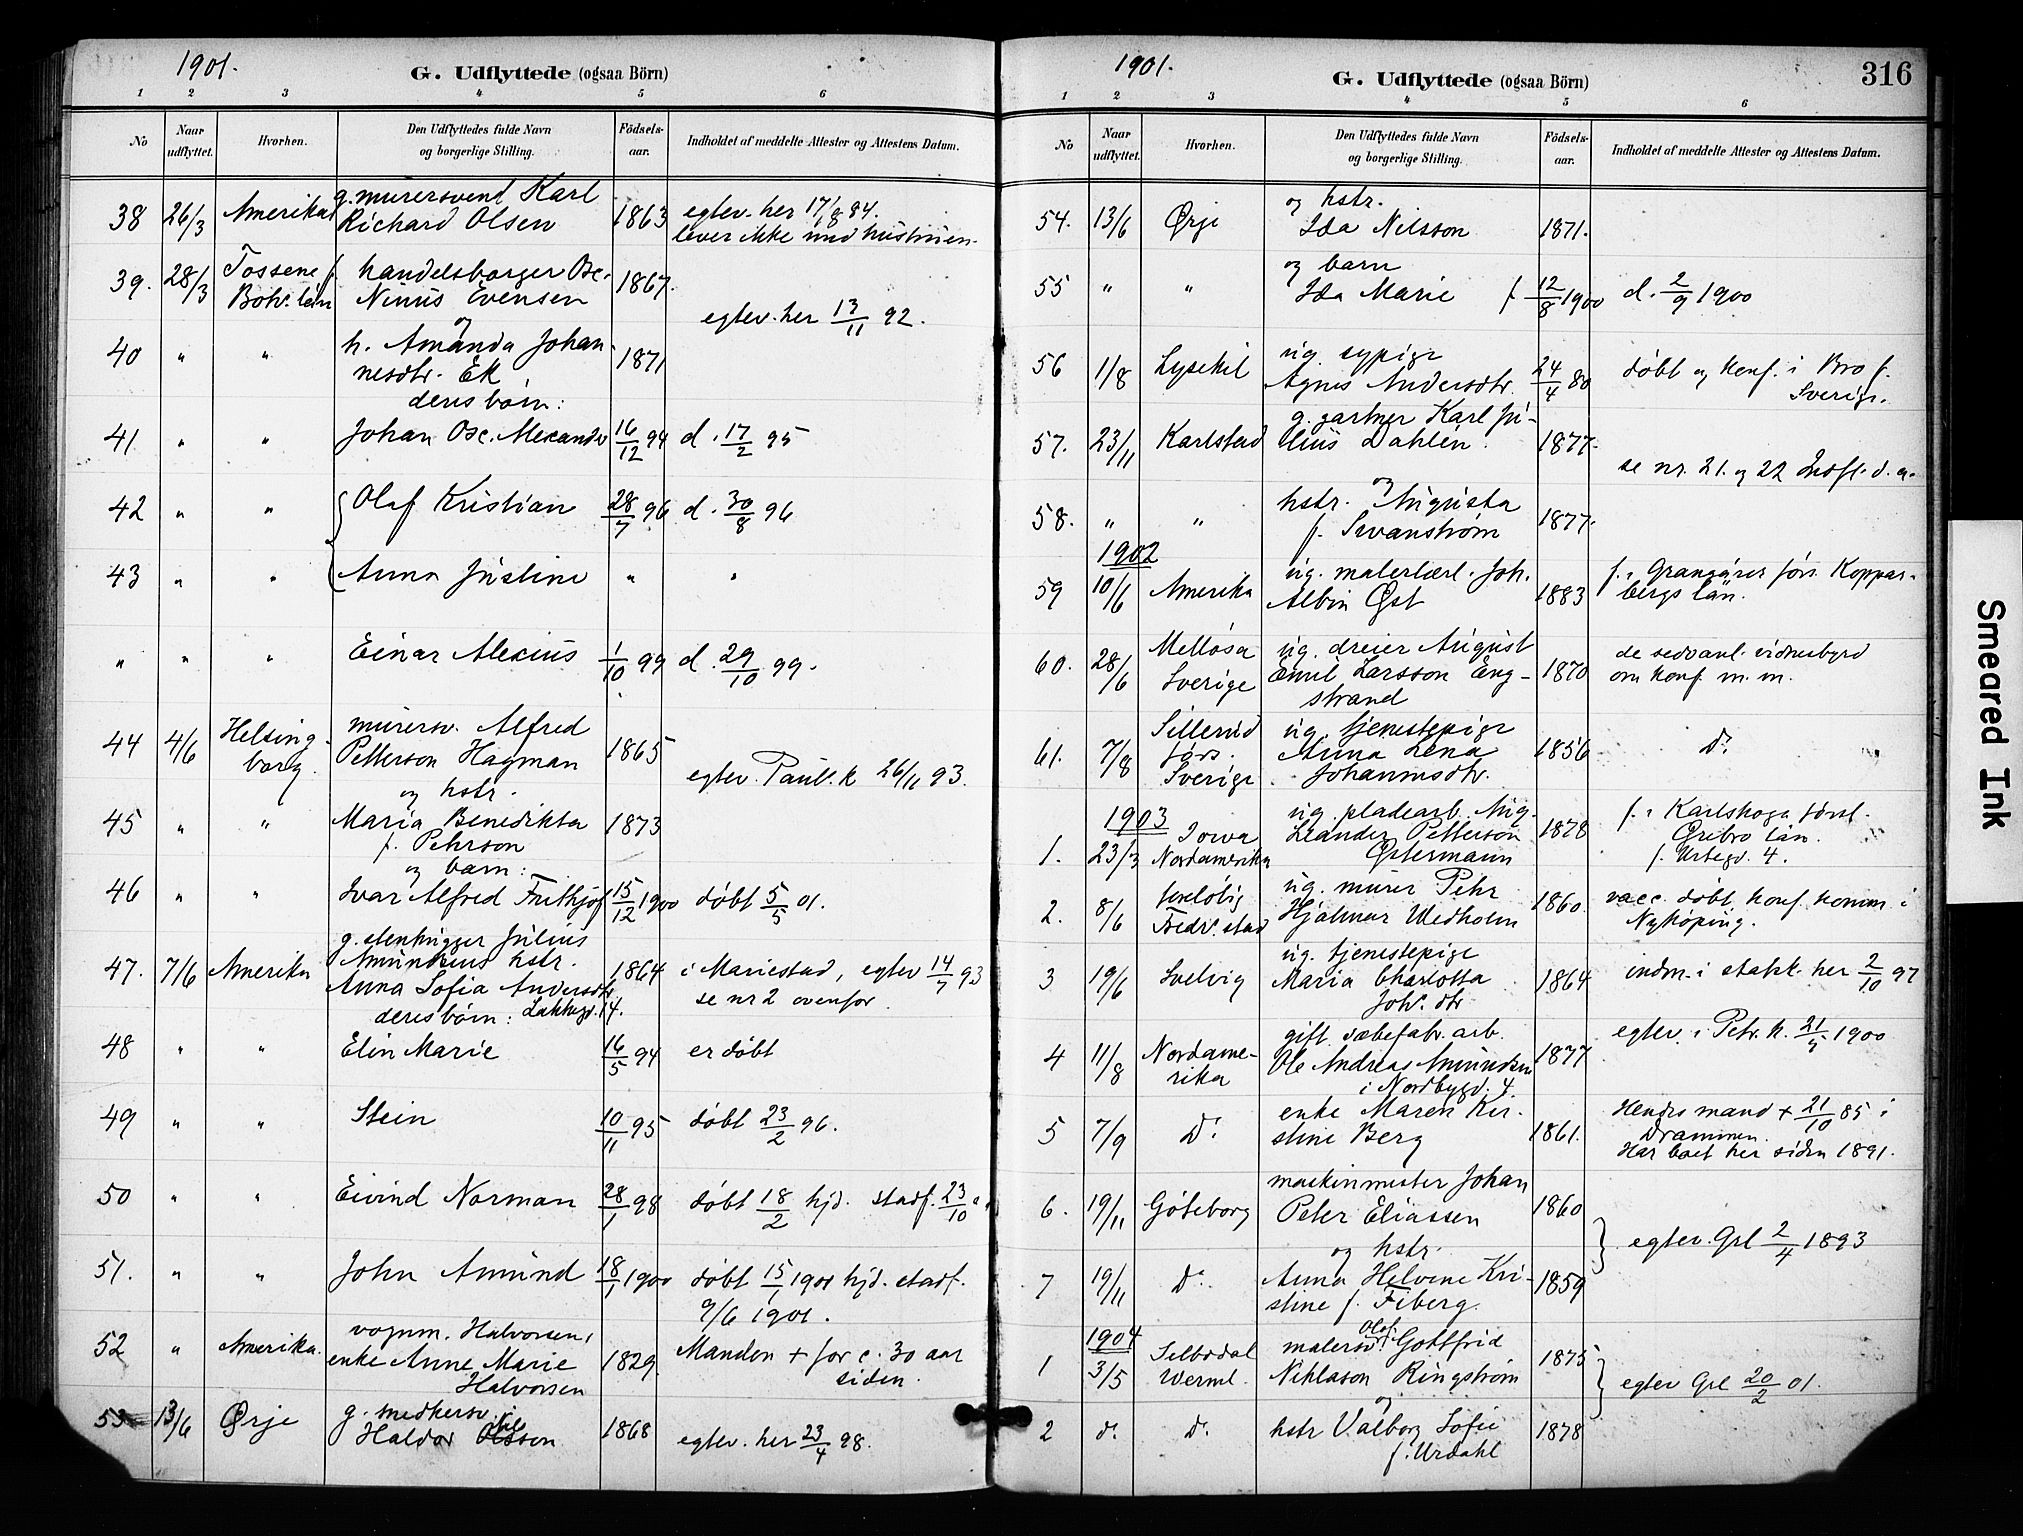 1901.
G. Udflyttede (ogsaa Börn)
1 2 3 4 5 6
No
Naar udflyttet.
Hvorhen.
Den Udflyttedes fulde Navn og borgerlige Stilling.
Födsels-aar.
Indholdet af meddelte Attester og Attestens Datum.
g. murersvend Karl
38 26/3 Amerika Richard Olsen 1863 egtev. her 17/8 84.
lever ikke med hustruen.
39. 28/3 Tossene f. handelsborger Osc. 1867.
Boh. län Ninus Evensen
og egtev. her 13/11 92.
40 " " h. Amanda Johan- 1871
nesdtr. Ek
deres børn:
41 " " Johan Osc. Alexander 16/12 94 d. 17/2 95
42 " " Olaf Kristian 28/7 96 d. 30/8 96
43 " " Anna Justine " "
" " " Einar Alexius 1/10 99 d. 29/10 99.
44 4/6 Helsing- murersv. Alfred
borg. Petterson Hagman 1865
og hstr. egtev. Paul. k 26/11 93.
45 " " Maria Benedikta 1873
f. Pehrson
og barn:
46 " " Ivar Alfred Frithjof 15/12 1900 døbt 5/5 01.
g. stenhugger Julius
47. 7/6 Amerika Amundsens hstr. 1864 i Mariestad, egtev 14/7 93
Anna Sofia Andersdtr se nr 2 ovenfor.
deres børn: Lakkegd. 14.
48 " " Elin Marie 16/5 94 er døbt
49 " " Stein 10/11 95 døbt 23/2 96.
50 " " Eivind Norman 28/1 98 døbt 18/2 hjd. stadf. 23/10
51. " " John Amund 18/1 1900 døbt 15/1 1901 hjd. stadf.
9/6 1901.
52 " Amerika. vognm. Halvorsens
enke Anne Marie 1829. Manden + for c. 30 aar
Halvorsen siden.
53 13/6 Ørje g. snedkersv. 1868
Haldor egtev. her 23/4 98.
1901.
G. Udflyttede (ogsaa Börn)
316
1 2 3 4 5 6
No
Naar udflyttet.
Hvorhen.
Den Udflyttedes fulde Navn og borgerlige Stilling.
Födsels-aar.
Indholdet af meddelte Attester og Attestens Datum.
og hstr.
54. 13/6 Ørje Ida Nilsson 1871.
og barn
55 " " Ida Marie f 12/8 1900 d. 2/9 1900
56 1/8 Lysekil ug. sypige døbt og konf. i Bro f.
Agnes Andersdtr. 24/4 80 Sverige.
g. gartner Karl Ju-
57. 23/11 Karlstad lius Dahlén 1877.
og se nr. 21. og 22 Indfl. d. a.
58. " " hstr. Augusta 1877.
f. Swanström
1902
59 10/6 Amerika ug. malerlærl. Joh. f. i Grangärde förs. Koppar-
Albin Øst 1883 bergs län.
60. 28/6 Mellösa ug. dreier August de sedvanl. vidnesbyrd
Sverige Emil Larsson Eng- 1870 om konf. m. m.
strand
61. 7/8 Sillerud ug. tjenestepige
förs. Anna Lena 1856 Do
Sverige Johannesdtr.
1903
1. 23/3 Iowa ug. pladearb. Aug. f. i Karlskoga förs.
Nordamerika Leander Petterson 1878 Örebro län.
Östermann f. Urtegd. 4.
2. 8/6 foreløbig ug. murer Pehr vacc. døbt, konf. komm. i
Fredr.stad Hjalmar Wedholm 1860. Nyköping.
3 19/6 Svelvig ug. tjenestepige
Maria Charlotta 1864 indm. i statsk. her 2/10 97
Joh. dtr
4 11/8 Nordame- gift sæbefabr. arb. egtev. i Petr. k. 21/ 1900
rika Ole Andreas Amundsen 1877
i Nordbygd. 4.
5 7/9 Do enke Maren Kri- Hendes mand + 21/10 85 i
stine Berg 1861. Drammen.
Har boet her siden 1891.
6. 19/11 Göteborg maskinmester Johan 1860
Peter Eliassen
og hstr. egtev. Grl 2/4 1893
7 19/11 Do Anna Helvine Kri- 1859
stine f. Fiberg.
1904
1 3/5 Silbodal malersv. Olof Gottfrid 1875
Werml. Niklason Ringström
og egtev Grl 20/2 01.
2 do Do hstr Valborg Sofie 1878
f. Urdahl
Smeared Ink